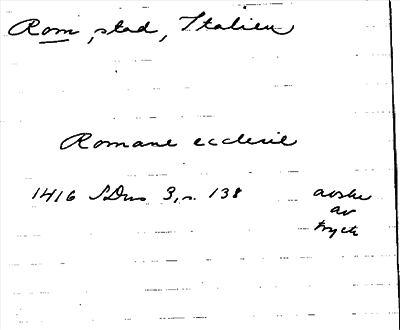 Rom, stad, Italien
Romane ecclesie
1416 SDns 3, s. 138
avskr
av
tryck